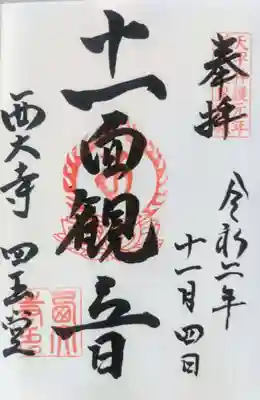 奉拝
令和二年
十一月四日
十一面観音
西大寺 四王堂